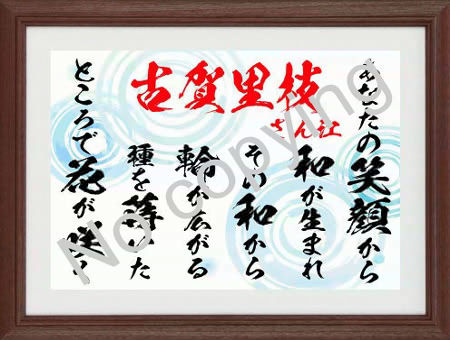 古賀里枝
さん江
あなたの笑顔から
和が生まれ
その和から
輪が広がる
種を蒔いた
ところで花が咲く
No copying